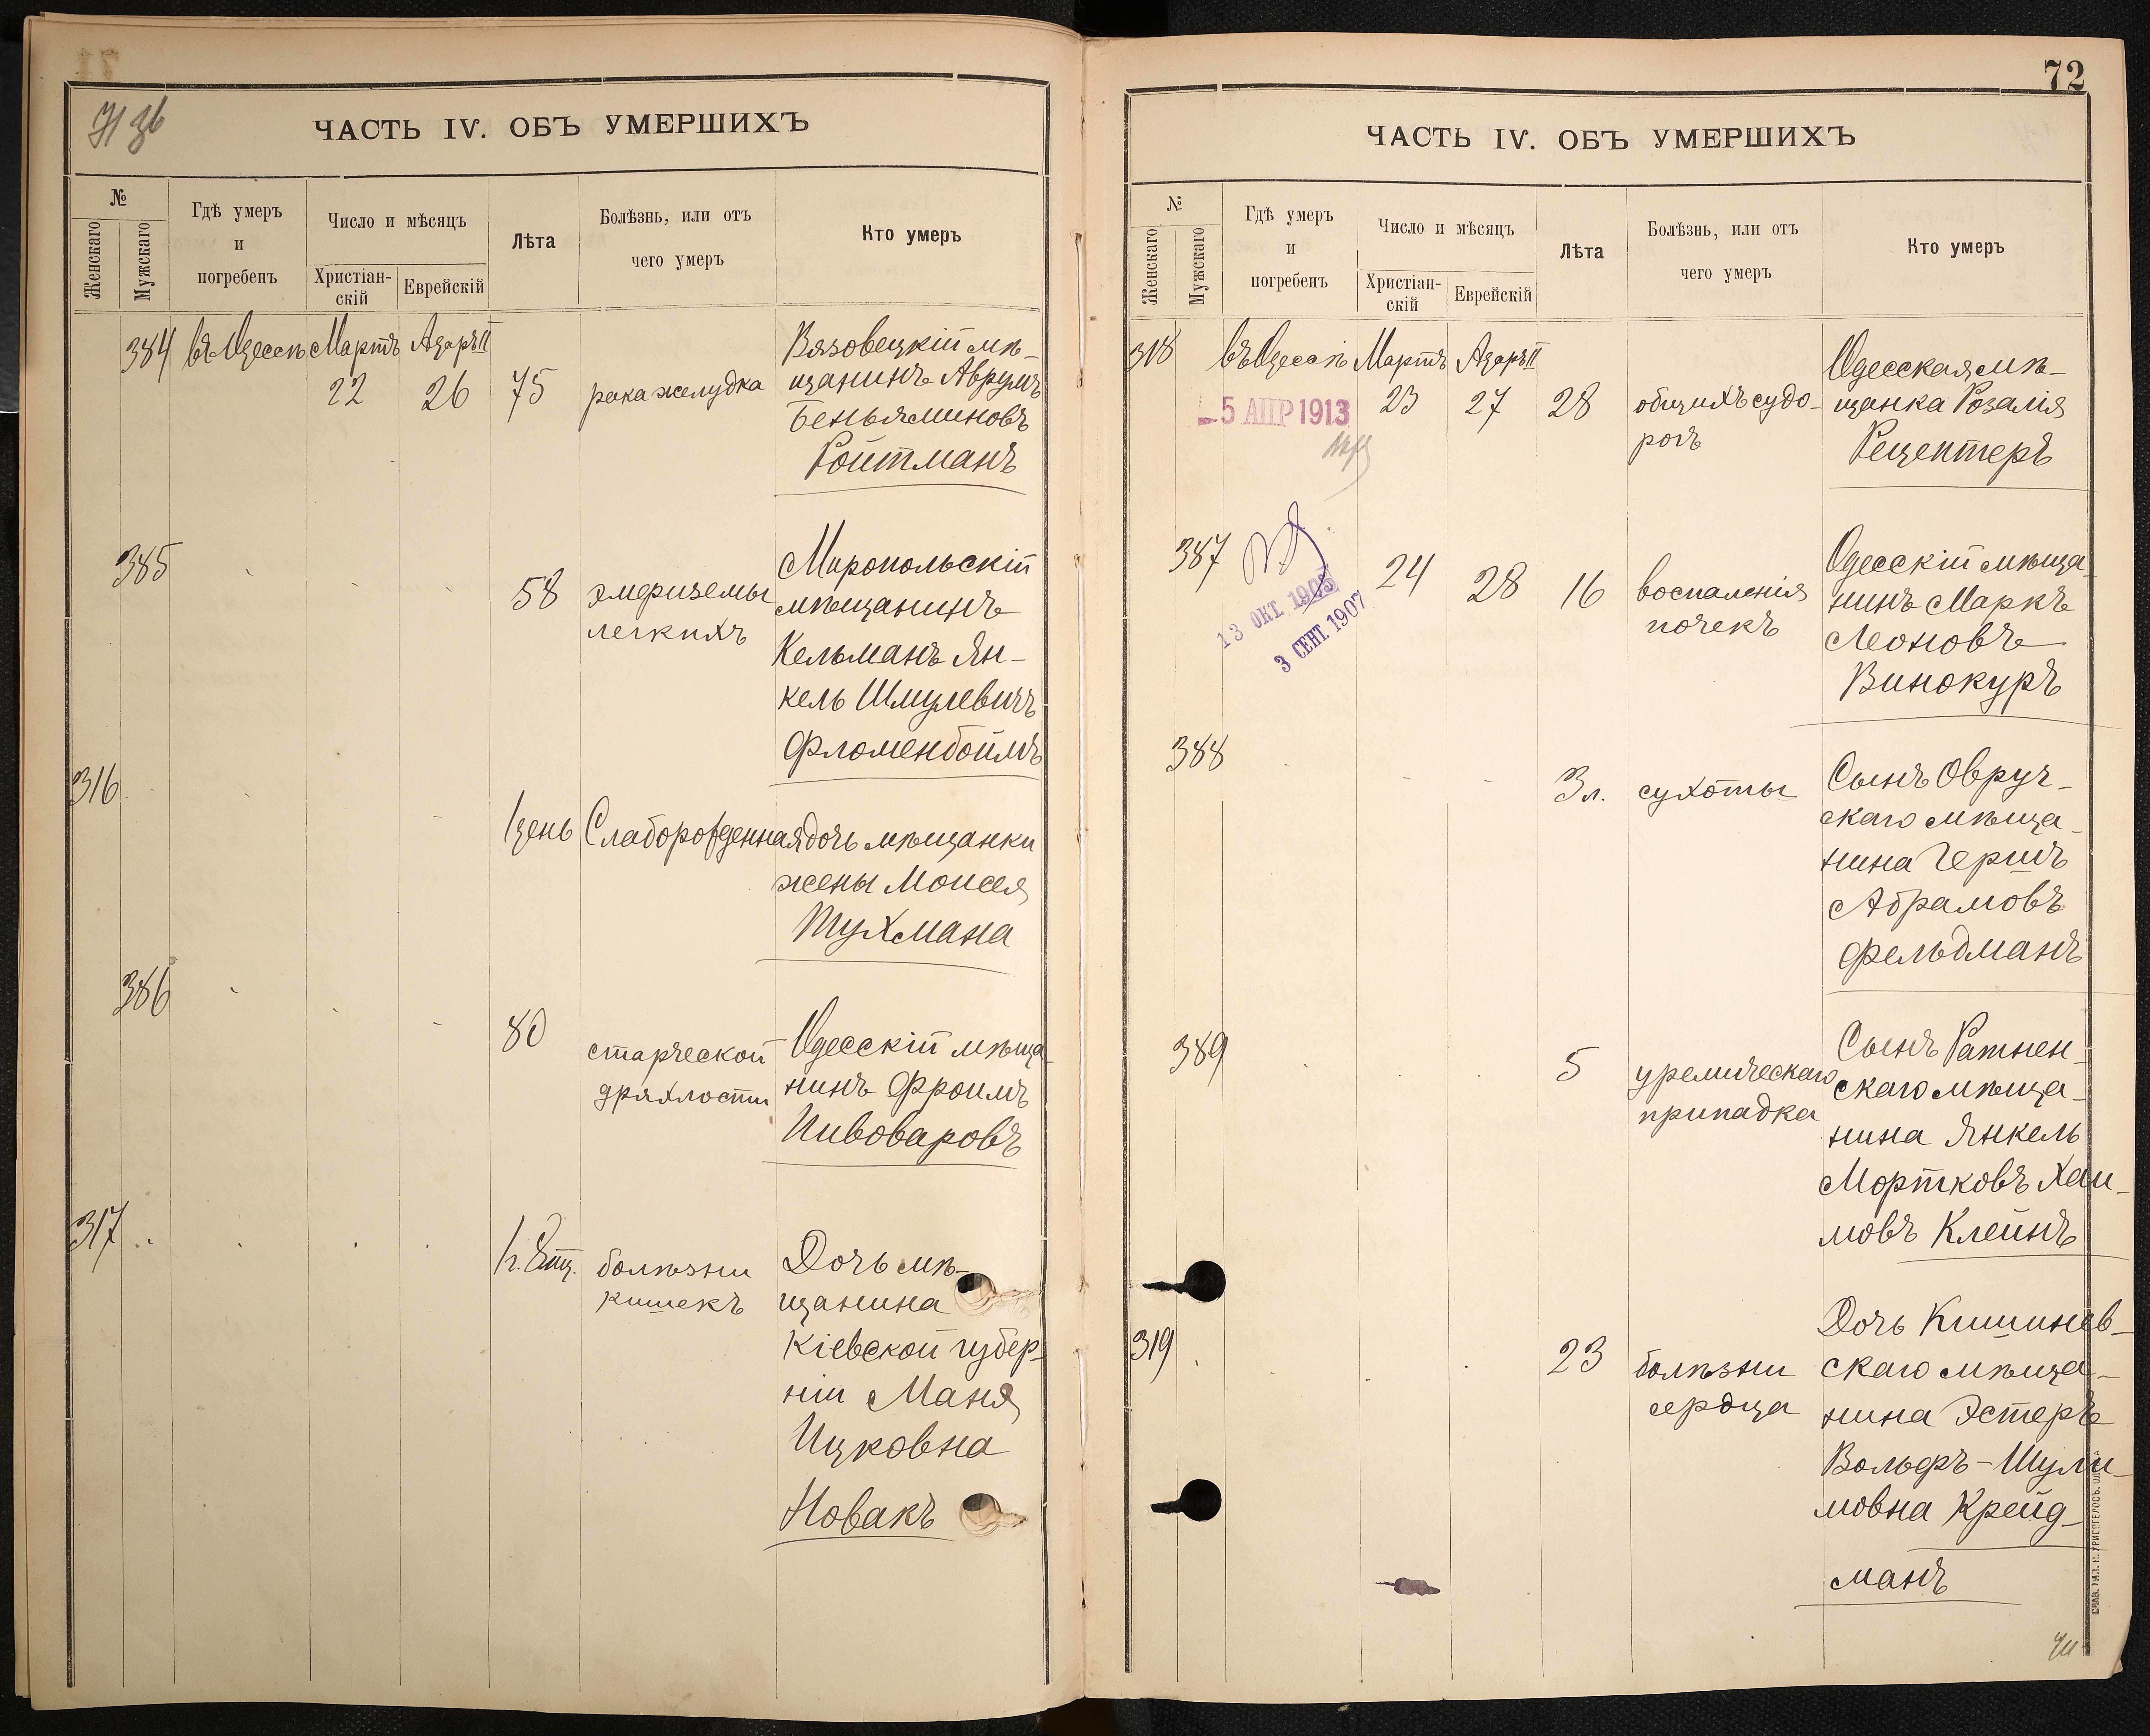 ЧАСТЬ IV. ОБЪ УМЕРШИХЪ
№
Женскаго
Мужскаго
Гдѣ умеръ
и
погребенъ
Число и мѣсяцъ
Христіан-
скій
Еврейскій
Лѣта
Болѣзнь, или отъ
чего умеръ
Кто умеръ
384 въ Одессѣ Мартъ Адаръ II
22 26 75 рака желудка
Вязовецкій мѣ-
щанинъ Аврумъ
Беньяминовъ
Ройтманъ
385
58 эмфиземы
легкихъ
Миропольскій
мѣщанинъ
Кельманъ Ян-
кель Шмулевичъ
Фломенбоймъ
316
1 день Слаборожденная дочь мѣщанки
жены Моисея
Тухмана
386
80 старческой
дряхлости
Одесскій мѣща-
нинъ Фроимъ
Пивоваровъ
317
болѣзни
кишекъ
Дочь мѣ-
щанина
Кіевской губер-
ніи Маня
Ицковна
Новакъ
72
ЧАСТЬ IV. ОБЪ УМЕРШИХЪ
№
Женскаго
Мужскаго
Гдѣ умеръ
и
погребенъ
Число и мѣсяцъ
Христіан-
скій
Еврейскій
Лѣта
Болѣзнь, или отъ
чего умеръ
Кто умеръ
318 въ Одессѣ Мартъ Адаръ II
23 27 28 общихъ судо-
рогъ
Одесская мѣ-
щанка Розалія
Рецептеръ
5 АПР 1913
387
24 28 16 воспаленія
почекъ
Одесскій мѣща-
нинъ Маркъ
Леоновъ
Винокуръ
13 ОКТ. 1905
3 СЕНТ. 1907
388
3 л. сухоты
Сынъ Овруч-
скаго мѣща-
нина Гершъ
Абрамовъ
Фельдманъ
389
5 уремическаго
припадка
Сынъ Ратнен-
скаго мѣща-
нина Янкель
Мортковъ Хаи-
мовъ Клейнъ
319
23 болѣзни
сердца
Дочь Кишинев-
скаго мѣща-
нина Эстеръ
Вольфъ-Шули-
мовна Крейд-
манъ